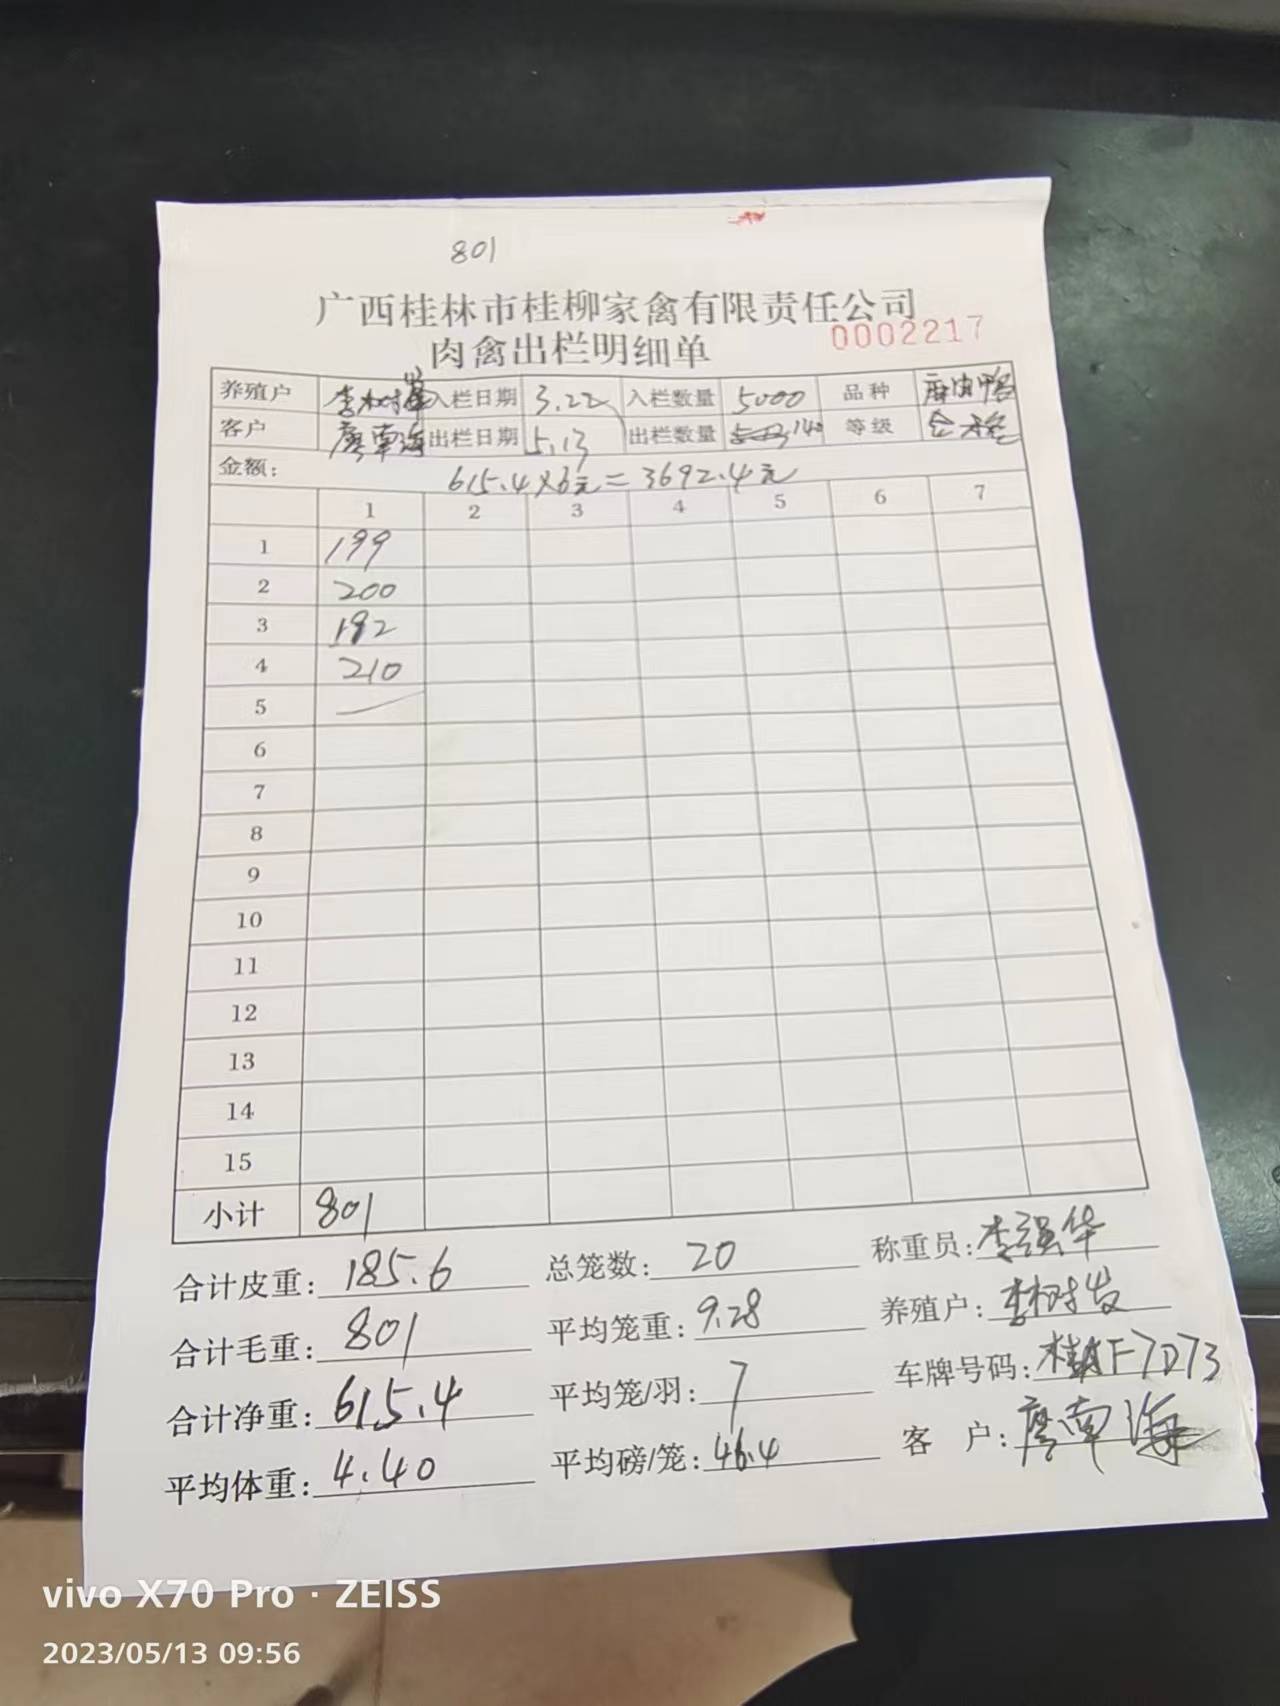 801
广西桂林市桂柳家禽有限责任公司
肉禽出栏明细单 0002217
养殖户 李树 入栏日期 3.22 入栏数量 5000 品种 麻油鸭
客户 廖南海 出栏日期 5.13 出栏数量 140 等级
金额: 615.4×6元=3692.4元
1 2 3 4 5 6 7
1 199
2 200
3 192
4 210
5
6
7
8
9
10
11
12
13
14
15
小计 801
合计皮重: 185.6 总笼数: 20 称重员: 李强华
合计毛重: 801 平均笼重: 9.28 养殖户: 李树发
合计净重: 615.4 平均笼/羽: 7 车牌号码: 桂 F7D73
平均体重: 4.40 平均磅/笼: 46.4 客 户: 廖南海
vivo X70 Pro · ZEISS
2023/05/13 09:56